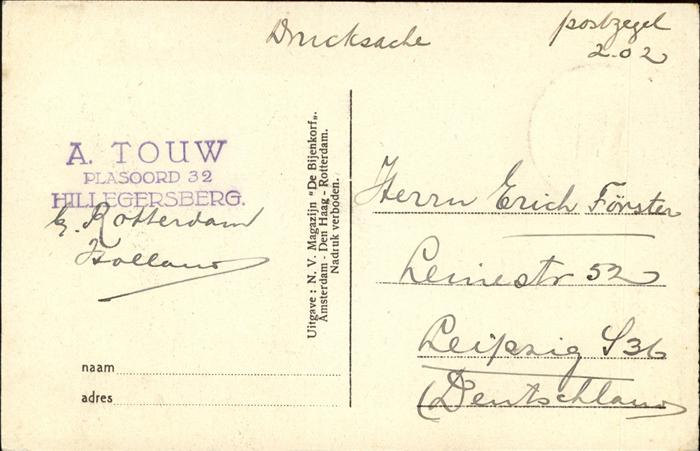 Drucksache
postzegel
2.02
A. TOUW
PLASOORD 32
HILLEGERSBERG.
b. Rotterdam
Holland
Uitgave: N. V. Magazijn "De Bijenkorf".
Amsterdam - Den Haag - Rotterdam.
Nadruk verboden.
Herrn Erich Förster
Leinestr 52
Leipzig S36
(Deutschland
naam
adres